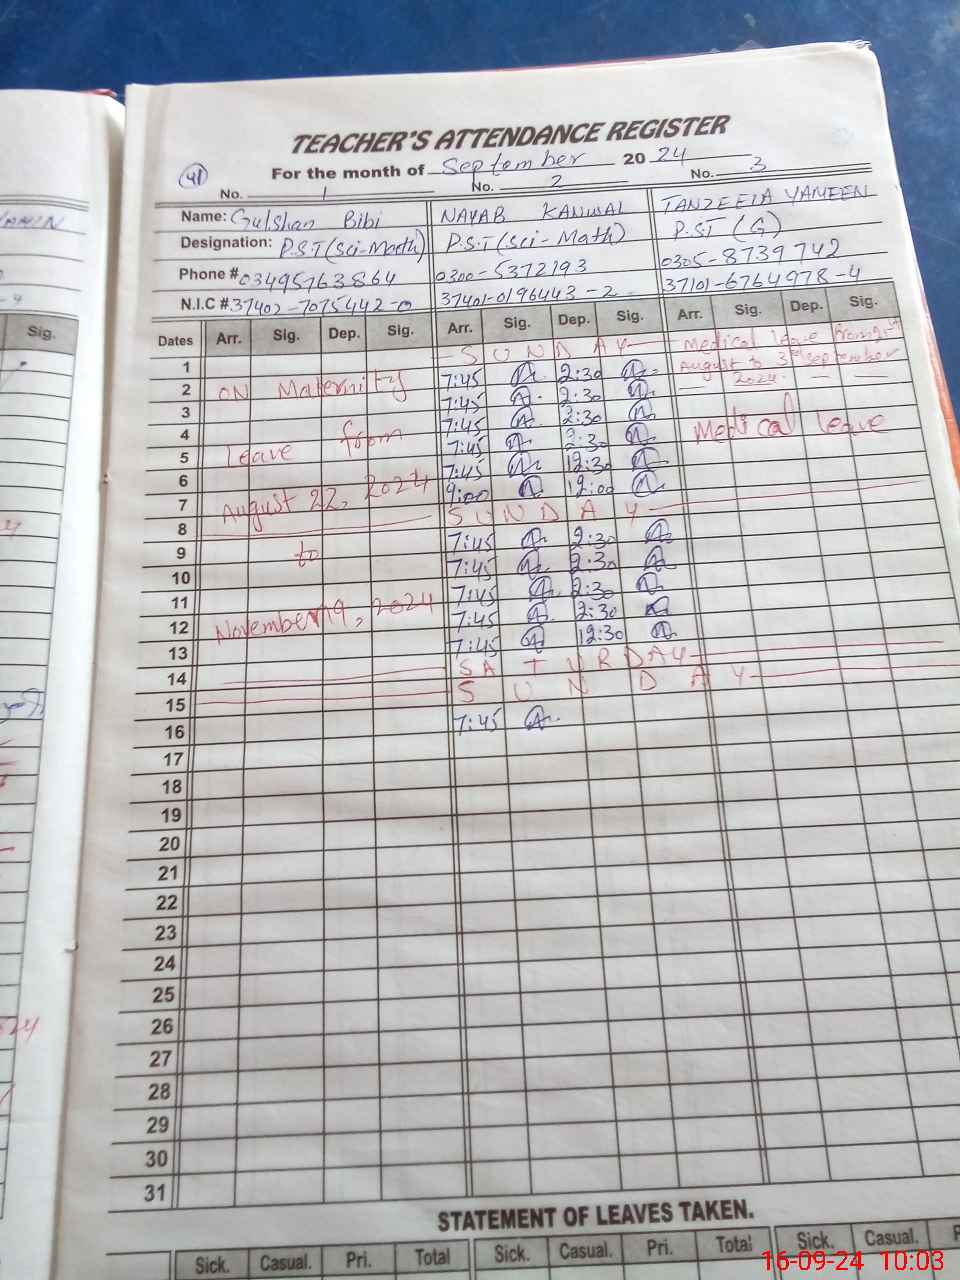 TEACHER'S ATTENDANCE REGISTER
41 For the month of September 2024
No. 1 No. 2 No. 3
Name: Gulshan Bibi NAYAB KANWAL TANZEELA YAMEEN
Designation: P.S.T (Sci-Math) P.S.T (Sci-Math) P.S.T (G)
Phone # 03495763864 0300-5372193 0305-8739742
N.I.C # 37402-7075442-0 37401-0196443-2 37101-6764978-4
Dates Arr. Sig. Dep. Sig. Arr. Sig. Dep. Sig. Arr. Sig. Dep. Sig.
1 SUNDAY Medical leave from
2 ON Maternity 7:45 2:30 August to 3rd september
3 7:45 2:30 2024.
4 7:45 2:30 Medical leave
5 Leave from 7:45 2:30
6 7:45 12:30
7 August 22, 2024 9:00 12:00
8 SUNDAY
9 to 7:45 2:30
10 7:45 2:30
11 7:45 2:30
12 November 19, 2024 7:45 2:30
13 7:45 12:30
14 SATURDAY
15 SUNDAY
16 7:45
17
18
19
20
21
22
23
24
25
26
27
28
29
30
31
STATEMENT OF LEAVES TAKEN.
Sick. Casual. Pri. Total Sick. Casual. Pri. Total Sick. Casual.
16-09-24 10:03